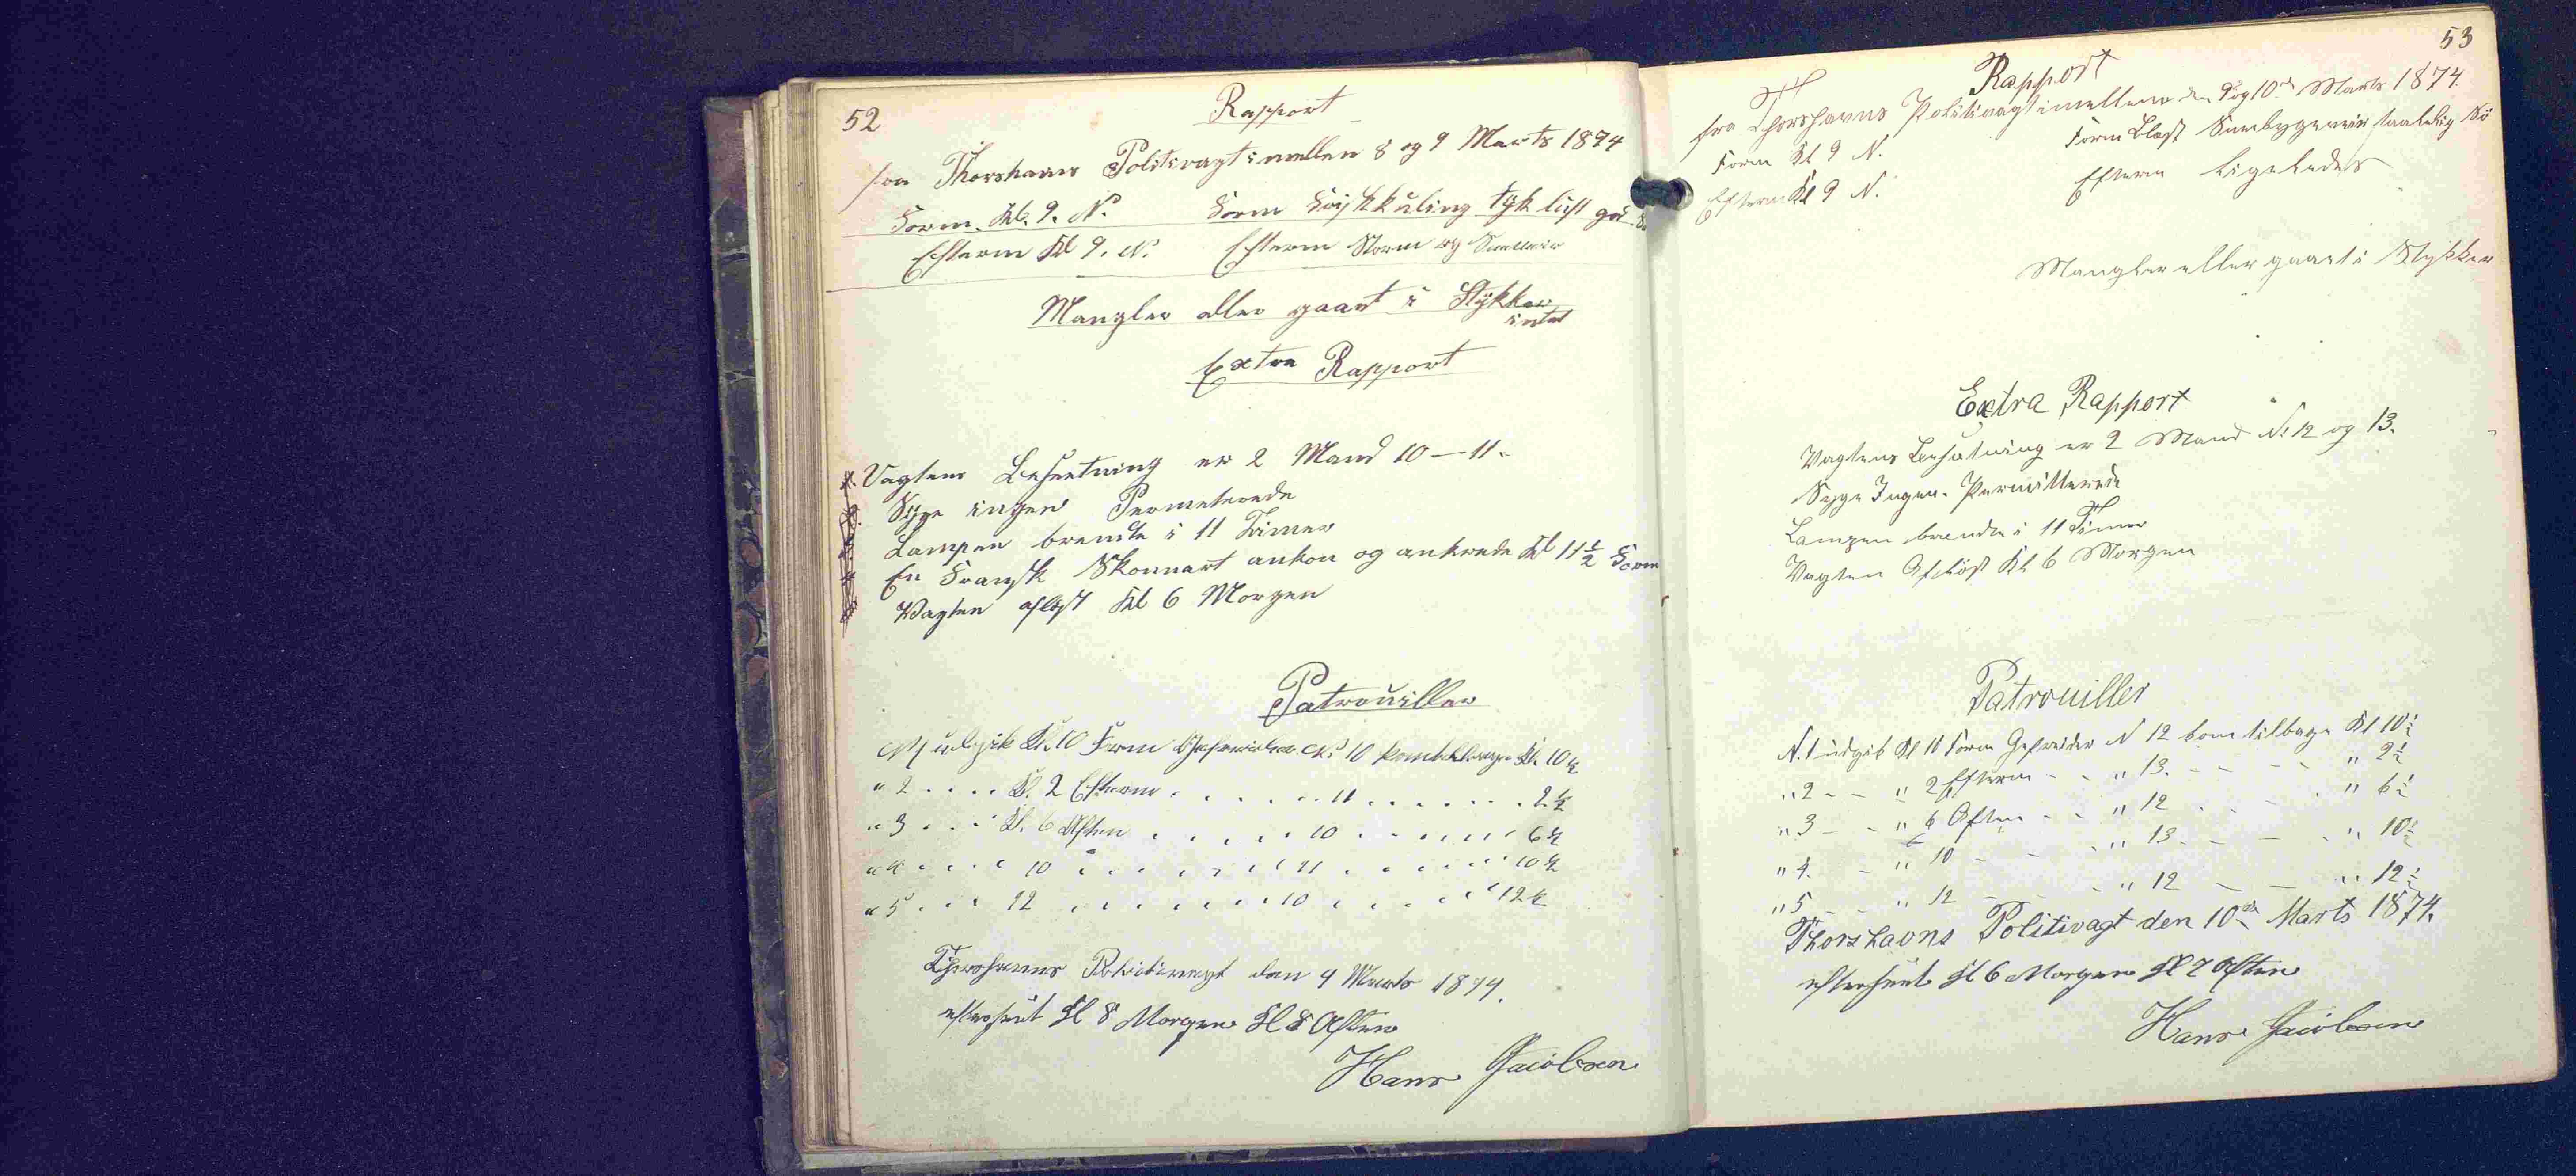 52
Rapport
fra Thorshavns Politivagt imellem 8 og 9 Marts 1874
Form. Kl. 9. N. Form Friskkuling tyk luft god
Efterm Kl 9. N. Efterm Storm og
Mangler eller gaaet i Stykker
intet
Extra Rapport
Vagtens Besætning er 2 Mand 10 - 11.
Syge ingen Permeterede
Lampen brendte i 11 Timer
En Fransk Skonnart ankom og ankrede Kl 11½ Form
Vagten aflöst Kl 6 Morgen
Patrouiller
N1 udgik Kl. 10 Form Gefreider N. 10 kom tilbage Kl. 10½
" 2 . . . . Kl. 2 Efterm . . . . . . 11 . . . . . . . 2½
" 3 . . . Kl. 6 Aften . . . . . 10 . . . . . . 6½
" 4 . . . . 10 . . . . . . 11 . . . . . . 10½
" 5 . . . 12 . . . . . . . 10 . . . . . 12½
Thorshavns Politivagt den 9 Marts 1874.
efterseet Kl 8 Morgen Kl 8 Aften
Hans Jacobsen
53
Rapport
fra Thorshavns Politivagt imellem den 9 og 10de Marts 1874.
Form Kl 9 N. Form Blæst Sneebygeveir taalelig Sö
Efterm Kl 9 N. Efterm Ligeledes
Mangler eller gaaet i Stykker
Extra Rapport
Vagtens Besætning er 2 Mand N: 12 og 13.
Syge Ingen. Permitterede
Lampen brendte i 11 Timer
Vagten Aflöst Kl 6 Morgen
Patrouiller
N. 1 udgik Kl 10 Form Gefreider N 12 kom tilbage Kl 10½
" 2 - - " 2 Efterm - - " 13. - - - - " 2½
" 3 - - " 6 Aften - - " 12 - - - " 6½
" 4. - " 10 - - " 13. - - - " 10½
" 5 - - " 12 - - - " 12 - - " 12½
Thorshavns Politivagt den 10de Marts 1874.
efterseet Kl 6 Morgen Kl 7 Aften
Hans Jacobsen